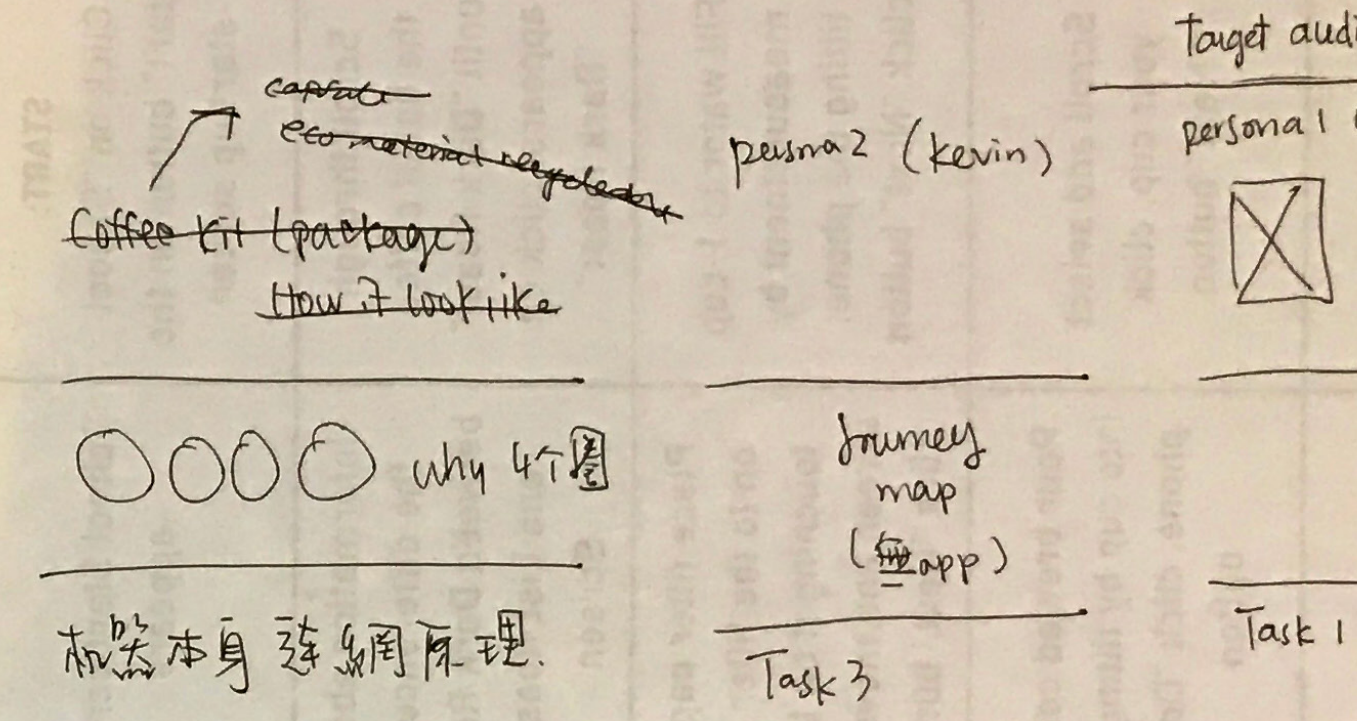 capsule
eco material recycled
Coffee kit (package)
How it look like
why 4个圈
机器本身連網原理.
persona 2 (kevin)
Journey
map
(無app)
Task 3
Target audi
persona 1 (
Task 1